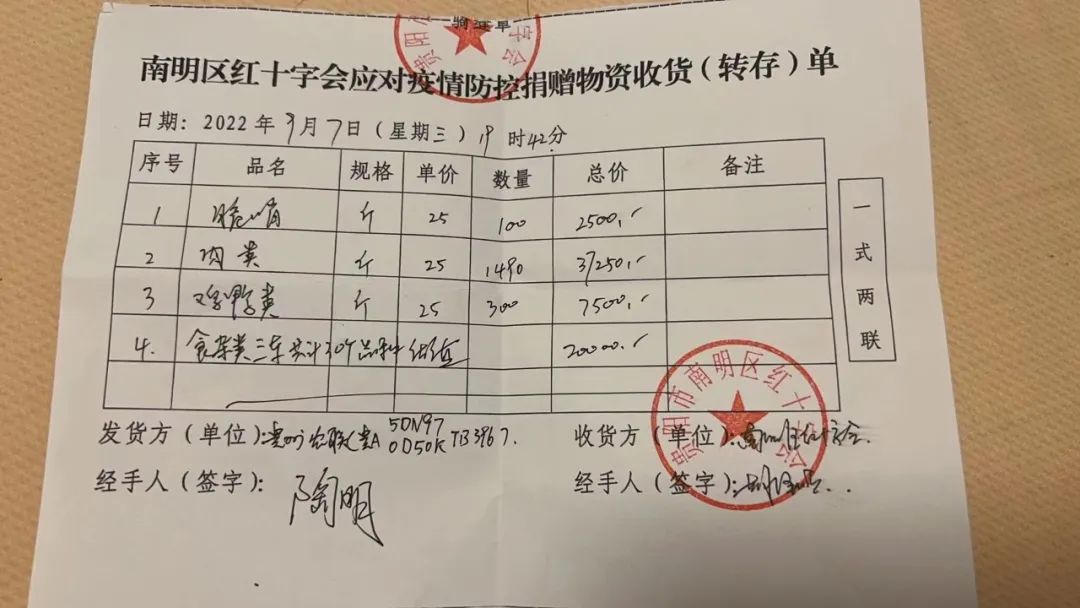 骑缝章
南明区红十字会应对疫情防控捐赠物资收货(转存)单
日期: 2022年9月7日(星期三)19时42分
序号 品名 规格 单价 数量 总价 备注
1 斤 25 100 2500.-
2 肉类 斤 25 1490 37250.-
3 鸡鸭类 斤 25 300 7500.-
4. 食杂类三车共计30个品种 20000.-
一式两联
发货方(单位): 贵A 5DN97 0D50K TB3967.
收货方(单位):
经手人(签字): 陶明
经手人(签字):
贵阳市南明区红十字会